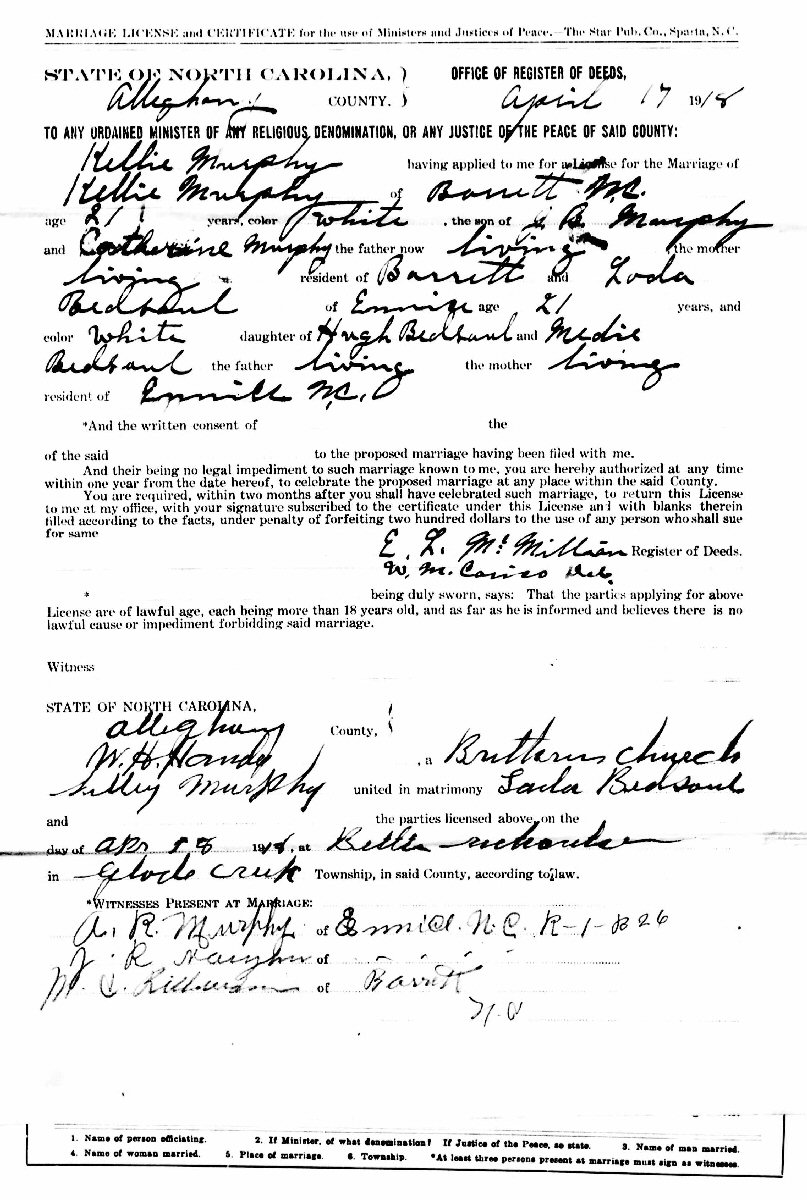 MARRIAGE LICENSE and CERTIFICATE for the use of Ministers and Justices of Peace.—The Star Pub. Co., Sparta, N. C.
STATE OF NORTH CAROLINA, ) OFFICE OF REGISTER OF DEEDS,
Alleghany COUNTY. ) April 17 1918
TO ANY ORDAINED MINISTER OF ANY RELIGIOUS DENOMINATION, OR ANY JUSTICE OF THE PEACE OF SAID COUNTY:
Kellie Murphy having applied to me for a License for the Marriage of
Kellie Murphy of Barrett N.C.
age 21 years, color White , the son of J. B. Murphy
and Catherine Murphy the father now living the mother
living resident of Barrett and Loda
Bedsaul of Ennice age 21 years, and
color White daughter of Hugh Bedsaul and Medie
Bedsaul the father living the mother living
resident of Ennice N.C.
*And the written consent of the
of the said to the proposed marriage having been filed with me.
And their being no legal impediment to such marriage known to me, you are hereby authorized at any time
within one year from the date hereof, to celebrate the proposed marriage at any place within the said County.
You are required, within two months after you shall have celebrated such marriage, to return this License
to me at my office, with your signature subscribed to the certificate under this License and with blanks therein
filled according to the facts, under penalty of forfeiting two hundred dollars to the use of any person who shall sue
for same
E. L. McMillian Register of Deeds.
W. M.
* being duly sworn, says: That the parties applying for above
License are of lawful age, each being more than 18 years old, and as far as he is informed and believes there is no
lawful cause or impediment forbidding said marriage.
Witness
STATE OF NORTH CAROLINA,
Alleghany County,
W. H. Handy , a church
Murphy united in matrimony Loda Bedsaul
and the parties licensed above, on the
day of Apr 18 1918, at
in Glade Creek Township, in said County, according to law.
*WITNESSES PRESENT AT MARRIAGE:
A. R. Murphy of Ennice. N. C. R-1-B 26
J R of
M. C. Richardson of Barrett
N. C
1. Name of person officiating. 2. If Minister, of what denomination? If Justice of the Peace, so state. 3. Name of man married.
4. Name of woman married. 5. Place of marriage. 6. Township. *At least three persons present at marriage must sign as witnesses.